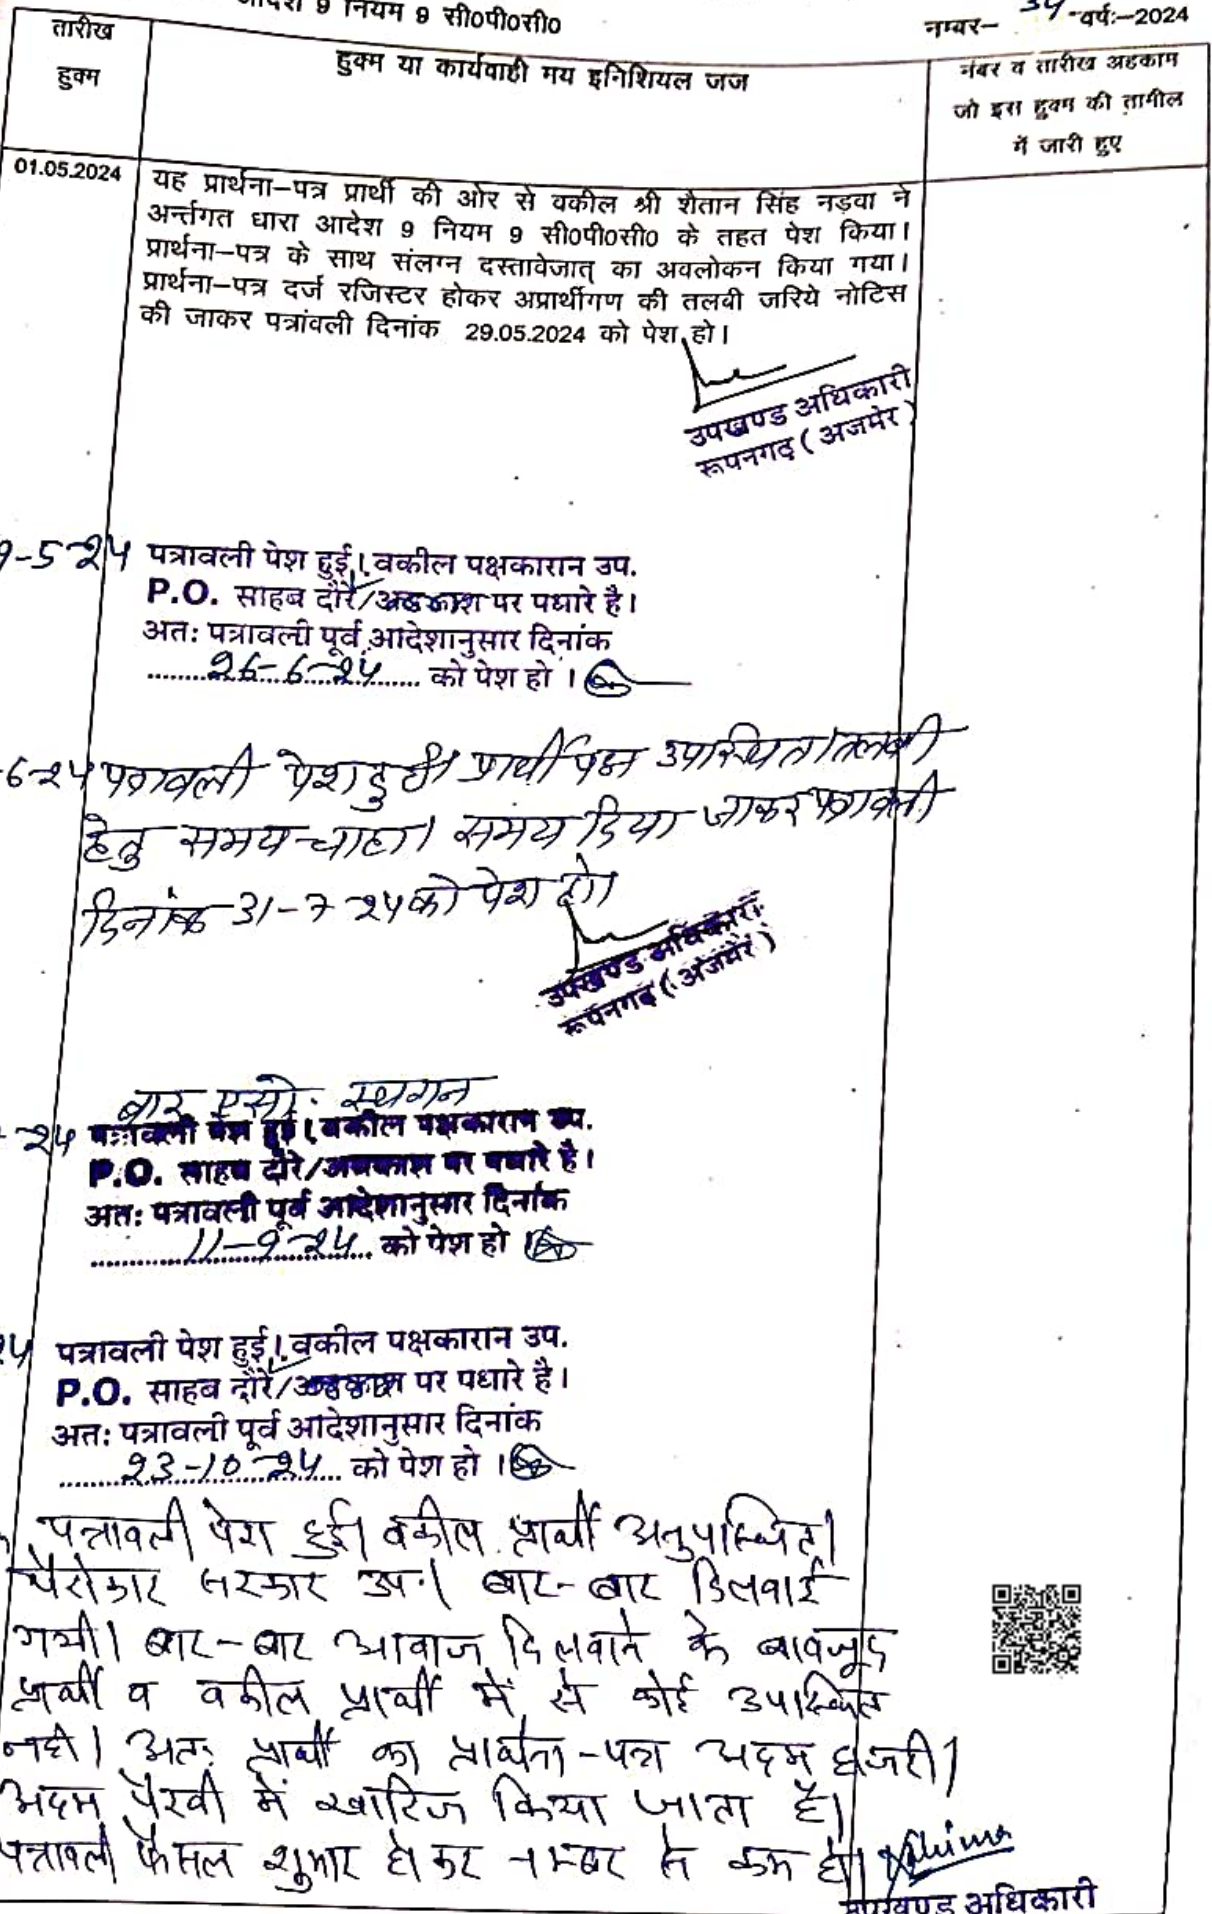 आदेश 9 नियम 9 सी०पी०सी०
नम्बर– 34 -वर्षः–2024
तारीख
हुक्म
हुक्म या कार्यवाही मय इनिशियल जज
नंबर व तारीख अहकाम
जो इस हुक्म की तामील
में जारी हुए
01.05.2024
यह प्रार्थना–पत्र प्रार्थी की ओर से वकील श्री शैतान सिंह नड़वा ने
अर्न्तगत धारा आदेश 9 नियम 9 सी०पी०सी० के तहत पेश किया।
प्रार्थना–पत्र के साथ संलग्न दस्तावेजात् का अवलोकन किया गया।
प्रार्थना–पत्र दर्ज रजिस्टर होकर अप्रार्थीगण की तलबी जरिये नोटिस
की जाकर पत्रांवली दिनांक 29.05.2024 को पेश हो।
उपखण्ड अधिकारी
रूपनगढ़ ( अजमेर )
9-5-24 पत्रावली पेश हुई। वकील पक्षकारान उप.
P.O. साहब दौरे/अवकाश पर पधारे है।
अतः पत्रावली पूर्व आदेशानुसार दिनांक
26-6-24 को पेश हो ।
6-24 पत्रावली पेश हुई। प्रार्थी पक्ष उपस्थित। तलबी
हेतु समय चाहा। समय दिया जाकर पत्रावली
दिनांक 31-7-24 को पेश हो।
उपखण्ड अधिकारी
रूपनगढ़ ( अजमेर )
बार एसो. स्थगन
-24 पत्रावली पेश हुई। वकील पक्षकारान उप.
P.O. साहब दौरे/अवकाश पर पधारे है।
अतः पत्रावली पूर्व आदेशानुसार दिनांक
11-9-24 को पेश हो
24 पत्रावली पेश हुई। वकील पक्षकारान उप.
P.O. साहब दौरे/अवकाश पर पधारे है।
अतः पत्रावली पूर्व आदेशानुसार दिनांक
23-10-24 को पेश हो ।
पत्रावली पेश हुई। वकील प्रार्थी अनुपस्थित।
पैरोकार सरकार उप.। बार-बार दिलवाई
गयी। बार-बार आवाज दिलवाने के बावजूद
प्रार्थी व वकील प्रार्थी में से कोई उपस्थित
नही। अतः प्रार्थी का प्रार्थना-पत्र अदम हाजरी।
अदम पैरवी में खारिज किया जाता है।
पत्रावली फैसल शुमार होकर नम्बर से कम हो।
उपखण्ड अधिकारी